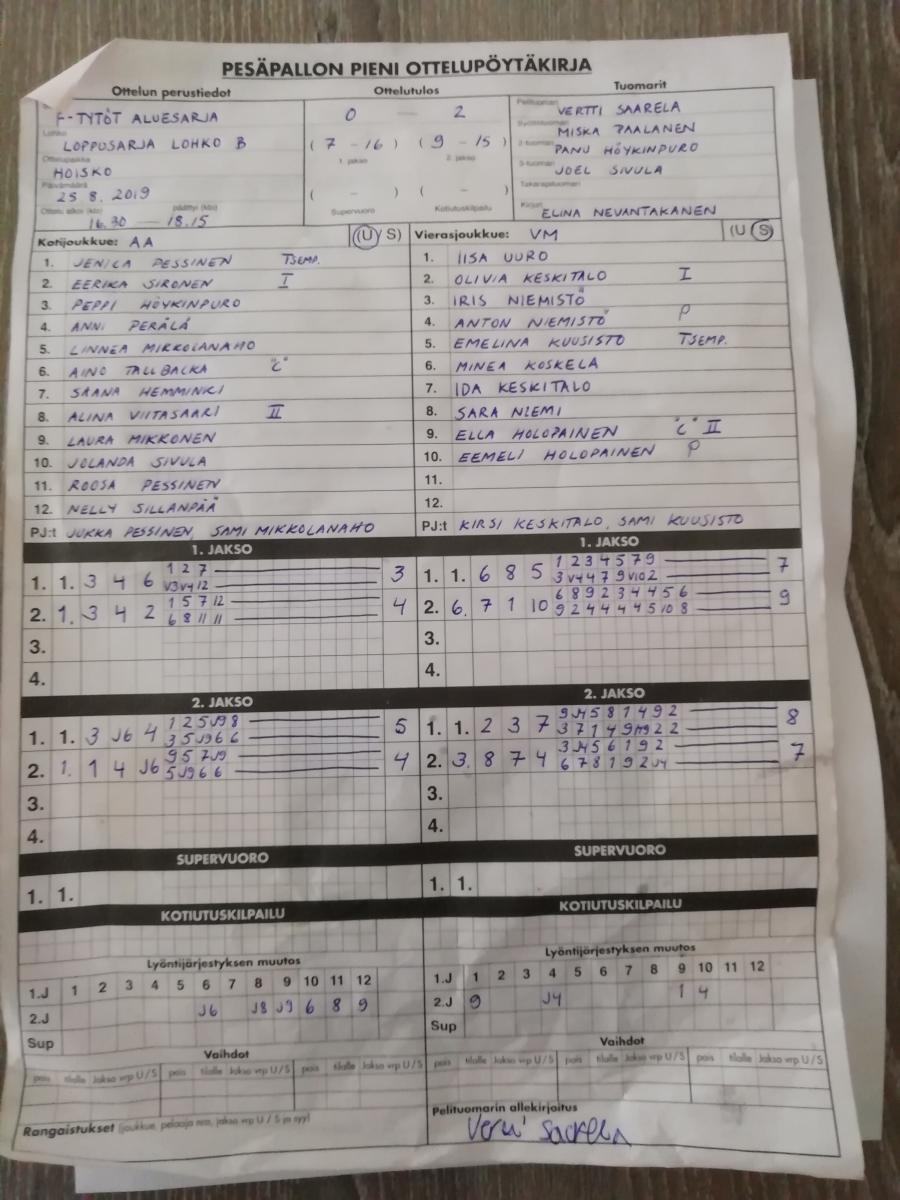 PESÄPALLON PIENI OTTELUPÖYTÄKIRJA
Ottelun perustiedot
F-TYTÖT ALUESARJA
Lohko
LOPPUSARJA LOHKO B
Ottelupaikka
HOISKO
Päivämäärä
25 8. 2019
Ottelu alkoi (klo) päättyi (klo)
16.30 — 18.15
Ottelutulos
0 — 2
( 7 - 16 ) ( 9 - 15 )
1. jakso 2. jakso
( - ) ( - )
Supervuoro Kotiutuskilpailu
Tuomarit
Pelituomari VERTTI SAARELA
Syöttötuomari MISKA PAALANEN
2-tuomari PANU HÖYKINPURO
3-tuomari JOEL SIVULA
Takarajatuomari
Kirjuri ELINA NEVANTAKANEN
Kotijoukkue: AA (U/S)
1. JENICA PESSINEN TSEMP.
2. EERIKA SIRONEN I
3. PEPPI HÖYKINPURO
4. ANNI PERÄLÄ
5. LINNEA MIKKOLANAHO
6. AINO TALLBACKA "C"
7. SAANA HEMMINKI
8. ALINA VIITASAARI II
9. LAURA MIKKONEN
10. JOLANDA SIVULA
11. ROOSA PESSINEN
12. NELLY SILLANPÄÄ
PJ:t JUKKA PESSINEN, SAMI MIKKOLANAHO
Vierasjoukkue: VM (U/S)
1. IISA UURO
2. OLIVIA KESKITALO I
3. IRIS NIEMISTÖ
4. ANTON NIEMISTÖ P
5. EMELINA KUUSISTO TSEMP.
6. MINEA KOSKELA
7. IDA KESKITALO
8. SARA NIEMI
9. ELLA HOLOPAINEN "C" II
10. EEMELI HOLOPAINEN P
11.
12.
PJ:t KIRSI KESKITALO, SAMI KUUSISTO
1. JAKSO
1. 1. 3 4 6 1 2 7 3
V3 V4 12
2. 1. 3 4 2 1 5 7 12 4
6 8 11 11
3.
4.
1. JAKSO
1. 1. 6 8 5 1 2 3 4 5 7 9 7
3 V4 4 7 9 V10 2
2. 6. 7 1 10 6 8 9 2 3 4 4 5 6 9
9 2 4 4 4 4 5 10 8
3.
4.
2. JAKSO
1. 1. 3 J6 4 1 2 5 J9 8 5
3 5 J9 6 6
2. 1. 1 4 J6 9 5 7 J9 4
5 J9 6 6
3.
4.
2. JAKSO
1. 1. 2 3 7 9 J4 5 8 1 4 9 2 8
3 7 1 4 9 2 2
2. 3. 8 7 4 3 J4 5 6 1 9 2 7
6 7 8 1 9 2 J4
3.
4.
SUPERVUORO
1. 1.
SUPERVUORO
1. 1.
KOTIUTUSKILPAILU
KOTIUTUSKILPAILU
Lyöntijärjestyksen muutos
1.J 1 2 3 4 5 6 7 8 9 10 11 12
2.J J6 J8 J9 6 8 9
Sup
Lyöntijärjestyksen muutos
1.J 1 2 3 4 5 6 7 8 9 10 11 12
2.J 9 J4 1 4
Sup
Vaihdot
pois tilalle Jakso vrp U/S pois tilalle Jakso vrp U/S pois tilalle Jakso vrp U/S
Vaihdot
pois tilalle Jakso vrp U/S pois tilalle Jakso vrp U/S pois tilalle Jakso vrp U/S
Rangaistukset (joukkue, pelaaja nro, jakso vrp U / S ja syy)
Pelituomarin allekirjoitus